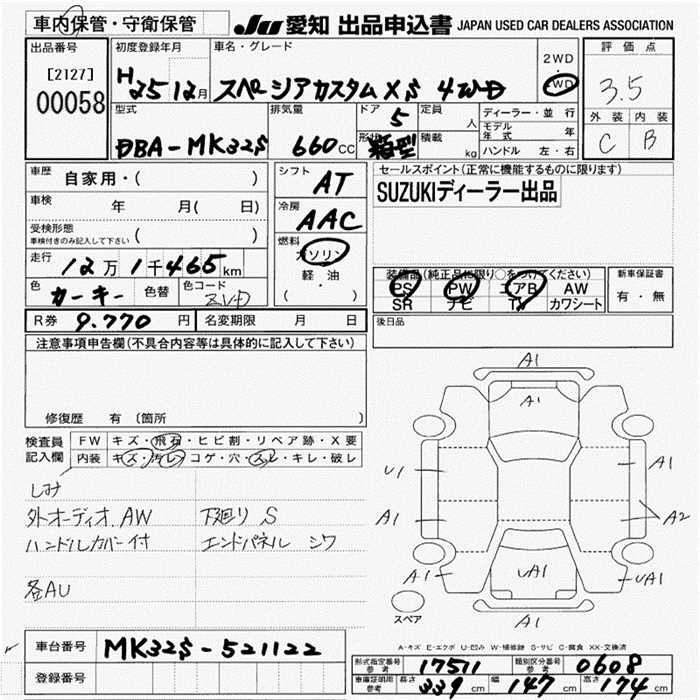 車内保管・守衛保管
JU 愛知 出品申込書 JAPAN USED CAR DEALERS ASSOCIATION
出品番号
[2127]
00058
初度登録年月
H25 12月
車名・グレード
スペーシアカスタムXS 4WD
2WD
4WD
評価点
3.5
外装 内装
C B
型式
DBA-MK32S
排気量
660cc
ドア
5
形状
箱型
定員
人
積載
kg
ディーラー・並行
モデル年式 年
ハンドル 左・右
車歴 自家用・( )
車検 年 月(日 )
受検形態
車検付きのみ記入して下さい ( )
走行 12万1千465km
色 カーキー 色替 色コード ZVD
R券 9.770円 名変期限 月 日
シフト
AT
冷房
AAC
燃料
ガソリン
軽・油
( )
セールスポイント(正常に機能するものに限ります)
SUZUKIディーラー出品
装備品(純正品に限り○をつけてください)
PS PW エアB AW
SR ナビ TV カワシート
新車保証書
有・無
後日品
注意事項申告欄(不具合内容等は具体的に記入して下さい)
修復歴 有 〔箇所 〕
検査員
記入欄
FW キズ・飛石・ヒビ割・リペア跡・X要
内装 キズ・汚レ・コゲ・穴・スレ・キレ・破レ
しみ
外オーディオ.AW 下廻りS
ハンドルカバー付 エンドパネル シワ
各AU
A1
A1
U1
A1
A1
A2
A1
UA1
UA1
A1
スペア
A-キズ E-エクボ U-凹み W-補修跡 S-サビ C-腐食 XX-交換済
車台番号 MK32S-521122
登録番号
形式指定番号 参考 17511 類別区分番号 参考 0608
車庫証明用 参考 長さ 339cm 幅 147cm 高さ 174cm